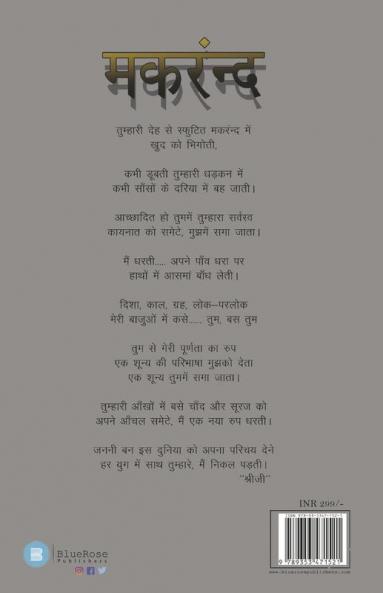 मकरंन्द
तुम्हारी देह से स्फुटित मकरंन्द में
खुद को भिगोती,
कभी डूबती तुम्हारी धड़कन में
कभी साँसों के दरिया में बह जाती।
आच्छादित हो तुममें तुम्हारा सर्वस्व
कायनात को समेटे, मुझमें समा जाता।
मैं धरती..... अपने पाँव धरा पर
हाथों में आसमां बाँध लेती।
दिशा, काल, ग्रह, लोक-परलोक
मेरी बाजुओं में कसे..... तुम, बस तुम
तुम से मेरी पूर्णता का रुप
एक शून्य की परिभाषा मुझको देता
एक शून्य तुममें समा जाता।
तुम्हारी आँखों में बसे चाँद और सूरज को
अपने आँचल समेटे, मैं एक नया रुप धरती।
जननी बन इस दुनिया को अपना परिचय देने
हर युग में साथ तुम्हारे, मैं निकल पड़ती।
"श्रीजी"
INR 299/-
B
BlueRose
Publishers
9 789353 471521